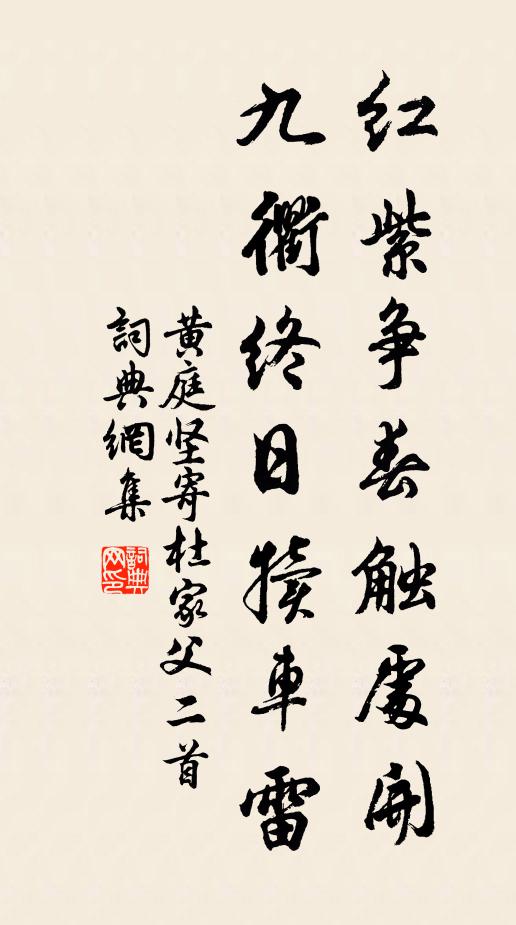 红紫争春触處開
九衢终日犊車雷
黄庭坚寄杜家父二首
詞典網集
詞典網印